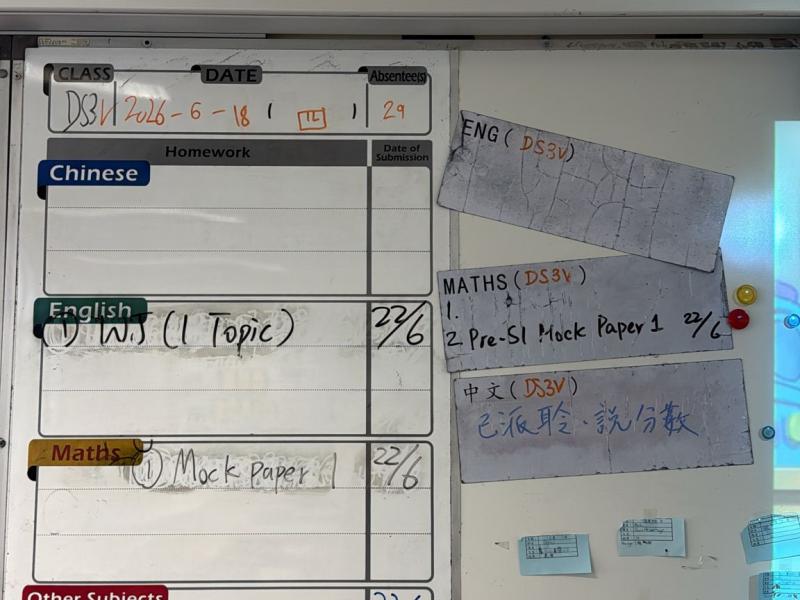 CLASS DATE Absentee(s)
DS3V 2026-6-18 ( 四 ) 29
Homework Date of Submission
Chinese
English
① W.S (1 Topic) 22/6
Maths
① Mock Paper 1 22/6
Other Subjects
ENG (DS3V)
MATHS (DS3V)
1.
2. Pre-S1 Mock Paper 1 22/6
中文 (DS3V)
已派聆、說分數